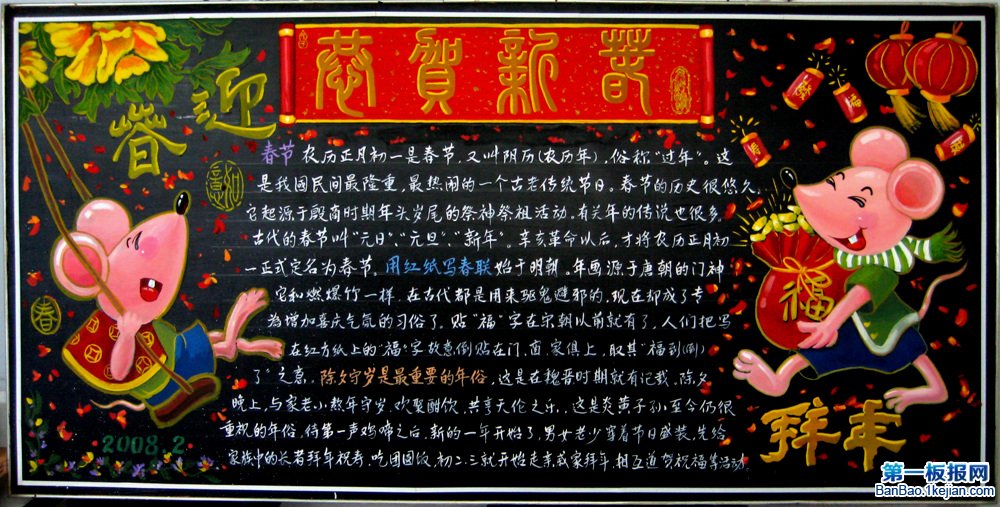 恭贺新春
迎春
春节 农历正月初一是春节，又叫阴历(农历年)，俗称“过年”。这
是我國民间最隆重，最热闹的一个古老传统节日。春节的历史很悠久，
它起源于殷商时期年头岁尾的祭神祭祖活动。有关年的传说也很多，
古代的春节叫“元日”、“元旦”、“新年”。辛亥革命以后，才将农历正月初
一正式定名为春节。用红纸写春联始于明朝。年画源于唐朝的门神
它和燃爆竹一样，在古代都是用来驱鬼避邪的，现在却成了专
为增加喜庆气氛的习俗了，贴“福”字在宋朝以前就有了，人们把写
在红方纸上的“福”字故意倒贴在门、窗、家俱上，取其“福到(倒)
了”之意，除夕守岁是最重要的年俗，这是在魏晋时期就有记载，除夕
晚上，与家老小熬年守岁，欢聚酣饮，共享天伦之乐，这是炎黄子孙至今仍很
重视的年俗，待第一声鸡啼之后，新的一年开始了，男女老少穿着节日盛装，先给
家族中的长者拜年祝寿，吃团圆饭，初二、三就开始走亲戚家拜年，相互道贺祝福等活动
福
春
2008.2
拜年
第一板报网
BanBao.1kejian.com